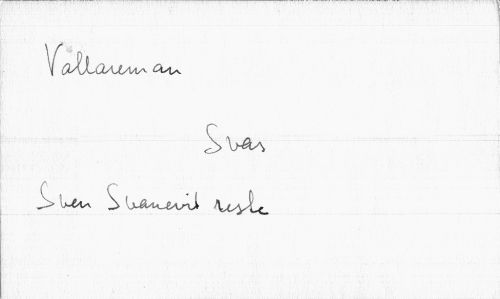 Vallareman
Svar
Sven Svanevit reste